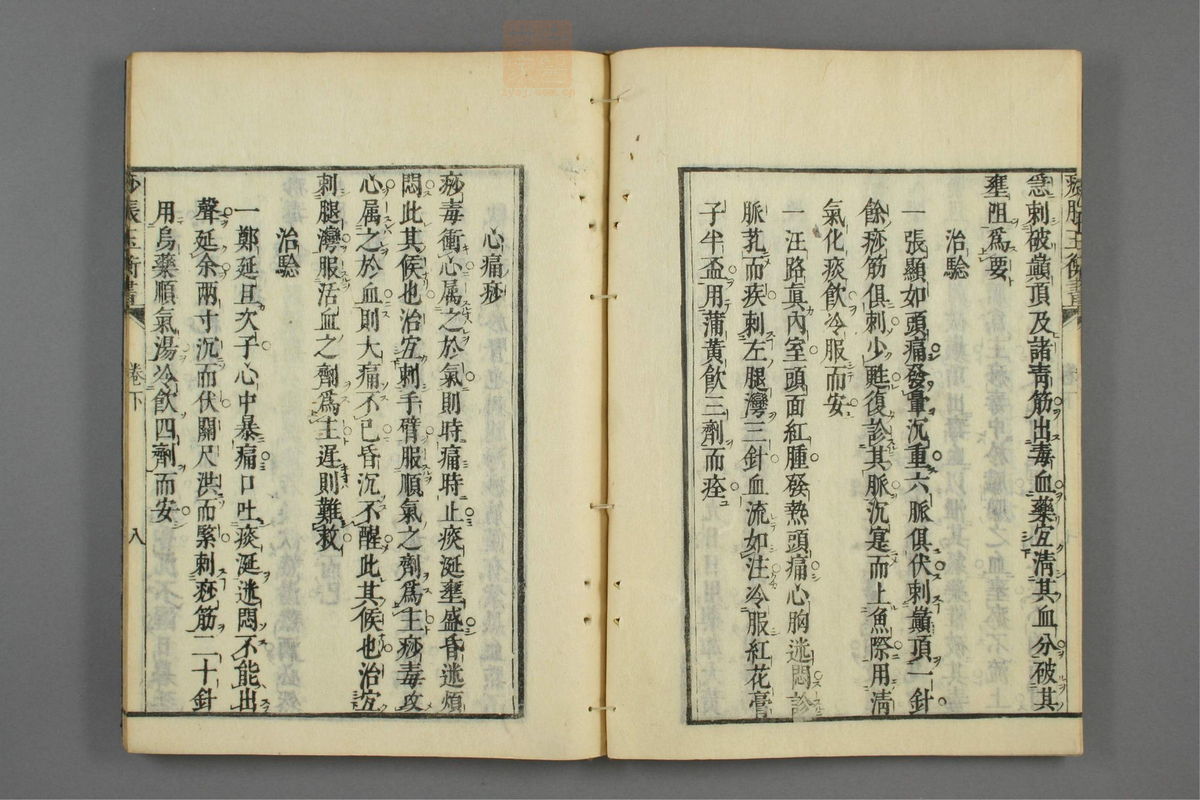 急刺破巔頂及諸靑筋出毒血藥宜淸其血分破其
壅阻爲要
治驗
一張顯如頭痛發暈沉重六脈俱伏刺巔頂一針
餘痧筋俱刺少甦復診其脈沉寔而上魚際用淸
氣化痰飮冷服而安
一汪路眞內室頭面紅腫發熱頭痛心胸迷悶診
脈芤而疾刺左腿灣三針血流如注冷服紅花膏
子半盃用蒲黃飮三劑而痊
心痛痧
痧毒衝心属之於氣則時痛時止痰涎壅盛昏迷煩
悶此其候也治宜刺手臂服順氣之劑爲主痧毒攻
心属之於血則大痛不已昏沉不醒此其候也治宜
刺腿灣服活血之劑爲主遲則難救
治驗
一鄭延且次子心中暴痛口吐痰涎迷悶不能出
聲延余兩寸沉而伏關尺洪而緊刺痧筋二十針
用烏藥順氣湯冷飮四劑而安
痧脹玉衡書
卷下
八